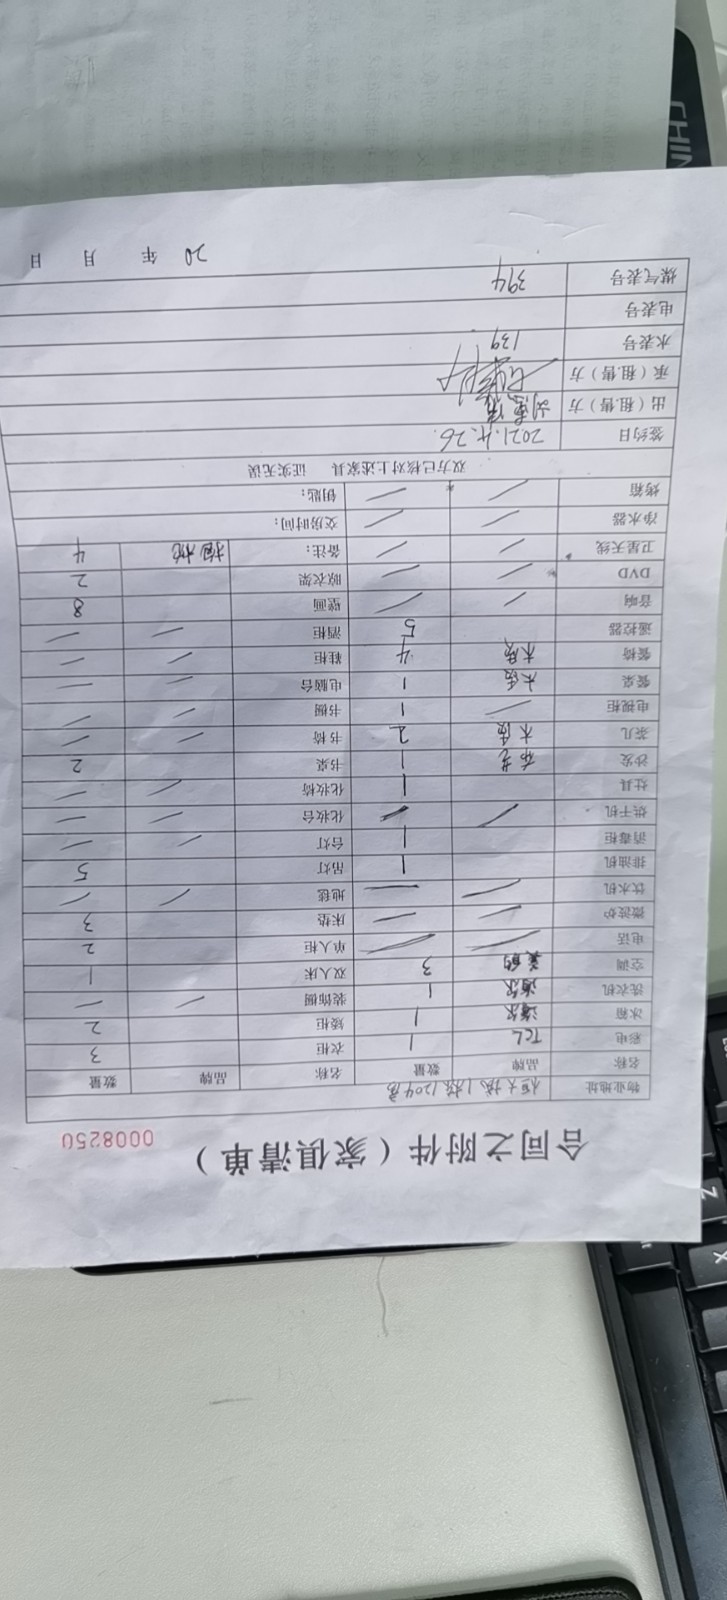 合同之附件（家俱清单）
0008250
物业地址 恒大城1栋1204房
名称 品牌 数量 名称 品牌 数量
彩电 TCL 1 衣柜 3
冰箱 海尔 1 矮柜 2
洗衣机 海尔 1 装饰橱 — —
空调 美的 3 双人床 1
电话 — — 单人柜 2
微波炉 — — 床垫 3
饮水机 — — 地毯 — —
排油机 1 吊灯 5
消毒柜 1 台灯 — —
烘干机 — — 化妆台 — —
灶具 1 化妆椅 — —
沙发 布艺 1 书桌 2
茶几 木质 2 书椅 — —
电视柜 — 1 书橱 — —
餐桌 木质 1 电脑台 — —
餐椅 木质 4 鞋柜 — —
遥控器 5 酒柜 — —
音响 — — 壁画 8
DVD — — 晾衣架 2
卫星天线 — — 备注： 4
净水器 — — 交房时间：
烤箱 — — 钥匙：
双方已核对上述家具 证实无误
签约日 2021.4.26
出（租.售）方
承（租.售）方
水表号 139
电表号
煤气表号 394
20 年 月 日
CHIN
Z
X